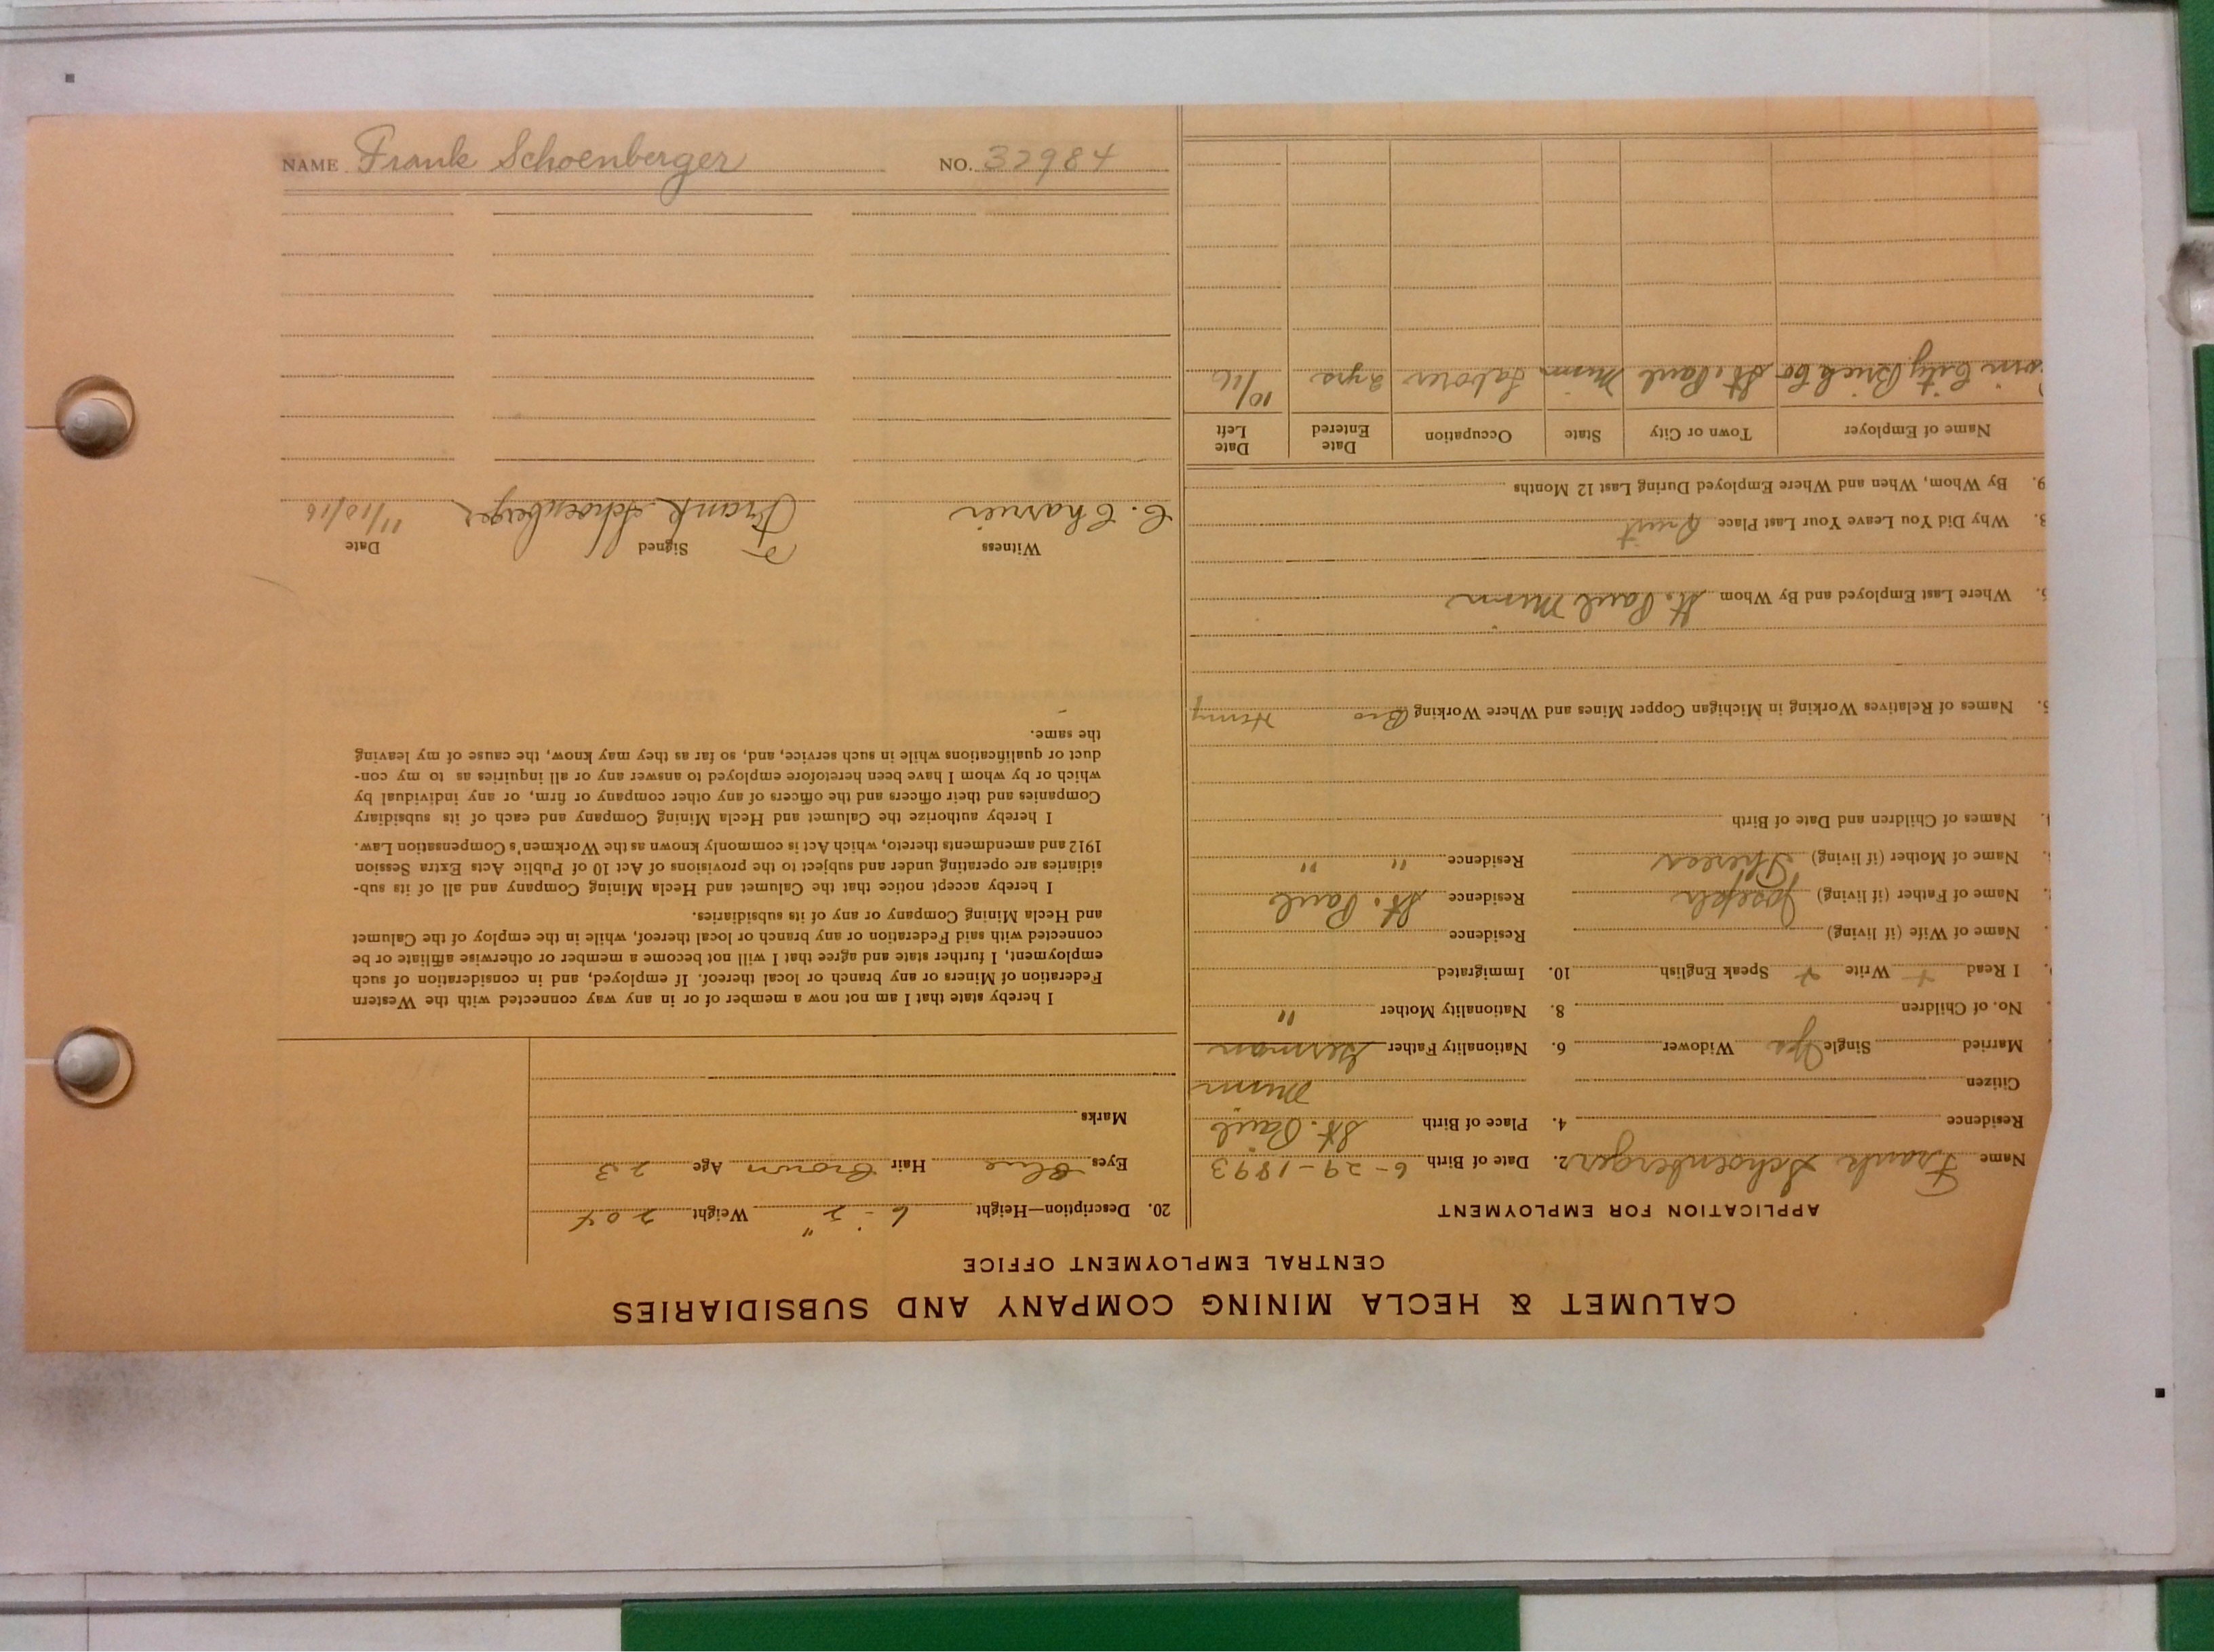 NAME Frank Schoenberger NO. 32984
CALUMET & HECLA MINING COMPANY AND SUBSIDIARIES
CENTRAL EMPLOYMENT OFFICE
APPLICATION FOR EMPLOYMENT
Name Frank Schoenberger 2. Date of Birth 6-29-1893
Residence 4. Place of Birth St. Paul
Citizen Minn
Married Single Yes Widower 6. Nationality Father German
No. of Children 8. Nationality Mother "
I Read + Write + Speak English 10. Immigrated
Name of Wife (if living) Residence
Name of Father (if living) Joseph Residence St. Paul
Name of Mother (if living) Theresa Residence " "
Names of Children and Date of Birth
5. Names of Relatives Working in Michigan Copper Mines and Where Working Bro Henry
Where Last Employed and By Whom St. Paul Minn
8. Why Did You Leave Your Last Place Quit
9. By Whom, When and Where Employed During Last 12 Months
Name of Employer Town or City State Occupation Date Entered Date Left
City Brick Co St. Paul Minn Laborer 2 yrs 10/16
20. Description—Height 6-2" Weight 204
Eyes Blue Hair Brown Age 23
Marks
I hereby state that I am not now a member of or in any way connected with the Western
Federation of Miners or any branch or local thereof. If employed, and in consideration of such
employment, I further state and agree that I will not become a member or otherwise affiliate or be
connected with said Federation or any branch or local thereof, while in the employ of the Calumet
and Hecla Mining Company or any of its subsidiaries.
I hereby accept notice that the Calumet and Hecla Mining Company and all of its sub-
sidiaries are operating under and subject to the provisions of Act 10 of Public Acts Extra Session
1912 and amendments thereto, which Act is commonly known as the Workmen's Compensation Law.
I hereby authorize the Calumet and Hecla Mining Company and each of its subsidiary
Companies and their officers and the officers of any other company or firm, or any individual by
which or by whom I have been heretofore employed to answer any or all inquiries as to my con-
duct or qualifications while in such service, and, so far as they may know, the cause of my leaving
the same.
Witness Signed Date
C. Charrier Frank Schoenberger 11/10/16